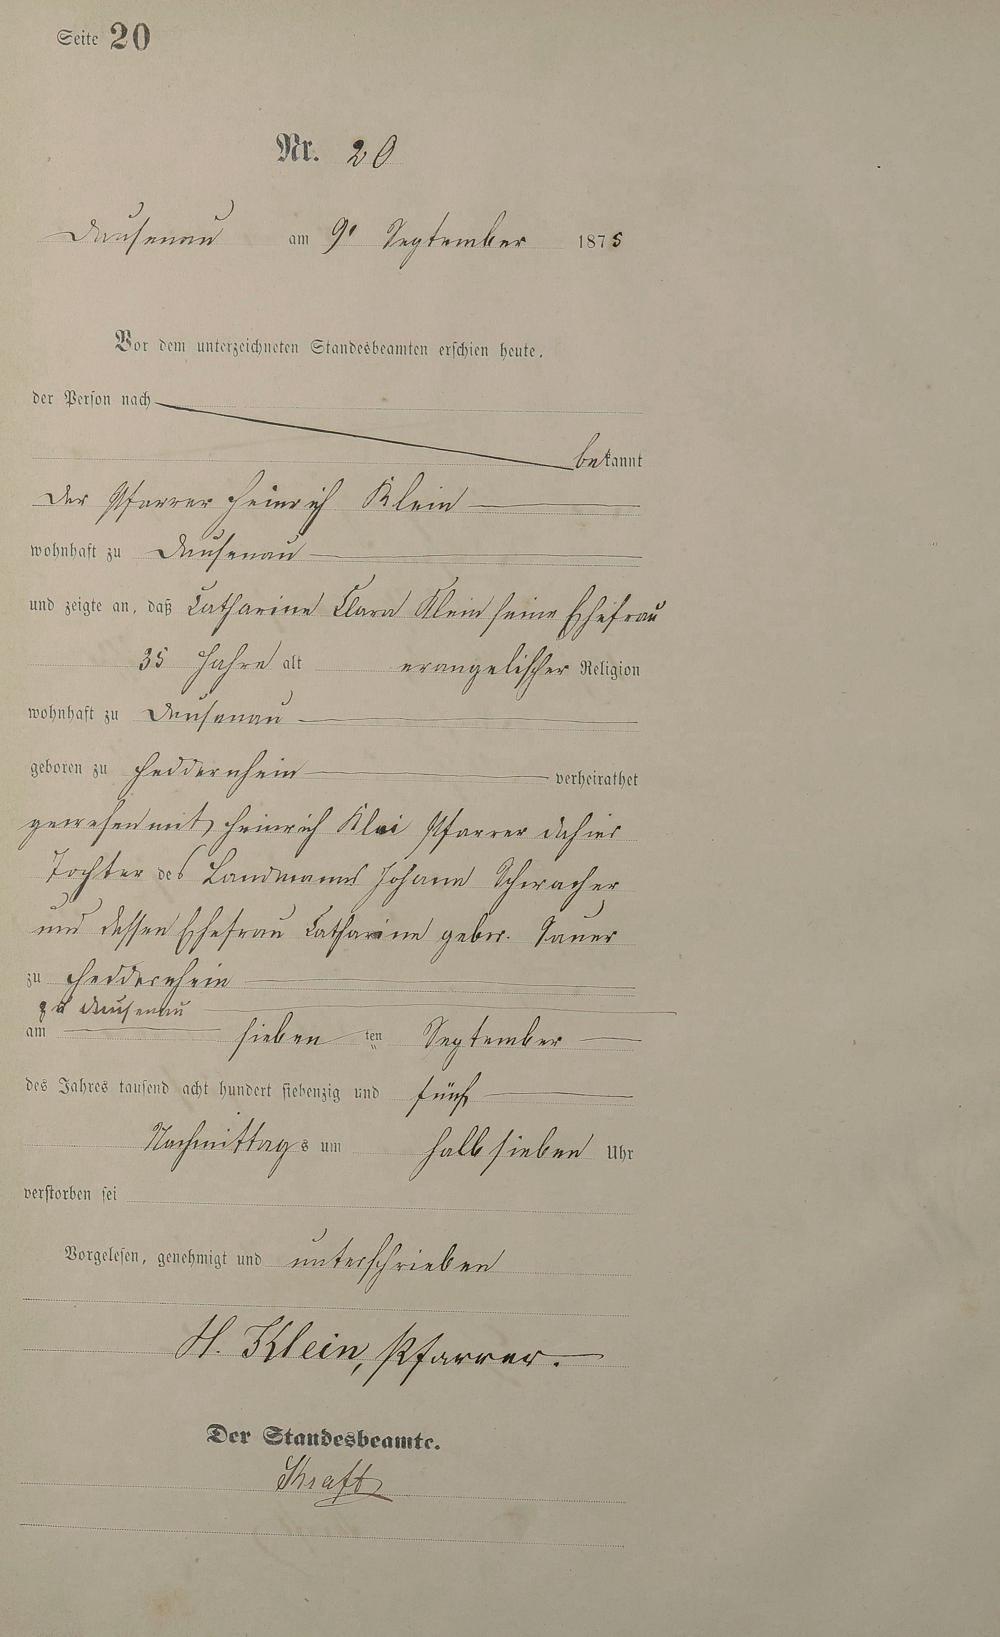 Seite 20
Nr. 20
Dausenau am 9' September 1875
Vor dem unterzeichneten Standesbeamten erschien heute,
der Person nach
bekannt
der Pfarrer Heinrich Klein
wohnhaft zu Dausenau
und zeigte an, daß Catharine Clara Klein seine Ehefrau
35 Jahre alt evangelischer Religion
wohnhaft zu Dausenau
geboren zu Heddernheim verheirathet
gewesen mit Heinrich Klei Pfarrer dahier
Tochter des Landmanns Johann Schwacher
und dessen Ehefrau Catharine gebor. Sauer
zu Heddernheim
zu Dausenau
am sieben ten September
des Jahres tausend acht hundert siebenzig und fünf
Nachmittags um halb sieben Uhr
verstorben sei
Vorgelesen, genehmigt und unterschrieben
H. Klein, Pfarrer.
Der Standesbeamte.
Kraft